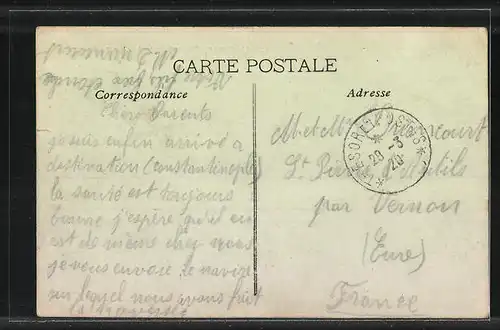 CARTE POSTALE
Correspondance
Adresse
Chers Parents
je suis enfin arrivé à
destination (Constantinople)
la santé est toujours
bonne j'espère qu'il en
est de même chez vous
je vous envoie le navire
sur lequel nous avons fait
la traversée
TRESOR ET POSTES
20 - 3
20
M. et Mme
St Pierre d'Autils
par Vernon
(Eure)
France